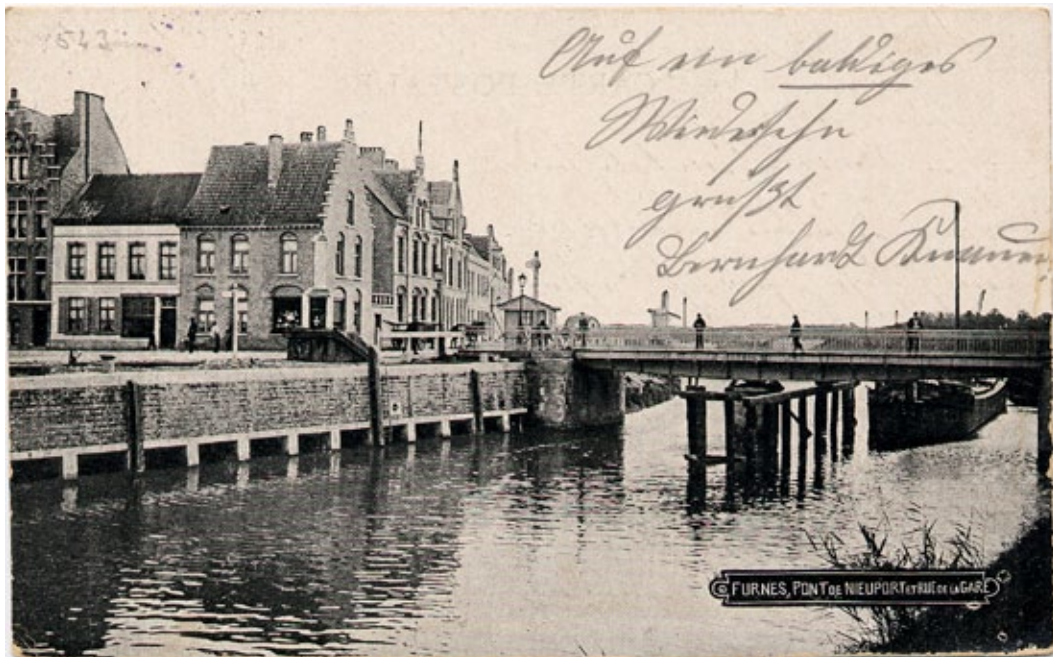 543
Auf ein baldiges
Wiedersehn
grüßt
Bernhardt Knauer
FURNES, PONT DE NIEUPORT ET RUE DE LA GARE